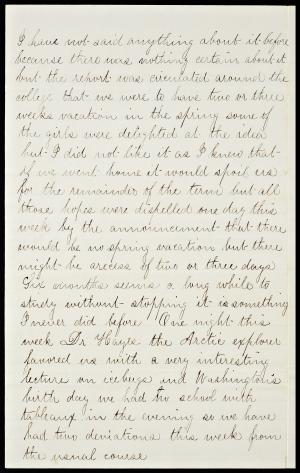 I have not said anything about it before
because there was nothing certain about it
but the report was circulated around the
college that we were to have two or three
weeks vacation in the spring some of
the girls were delighted at the idea
but I did not like it as I knew that
if we went home it would spoil us
for the remainder of the term but all
those hopes were dispelled one day this
week by the announcement that there
would be no spring vacation but there
might be a recess of two or three days
Six months seems a long while to
study without stopping it is something
I never did before One night this
week Dr Hayes the Arctic explorer
favored us with a very interesting
lecture on icebergs and Washington's
birth day we had no school with
tableaux in the evening so we have
had two deviations this week from
the usual course